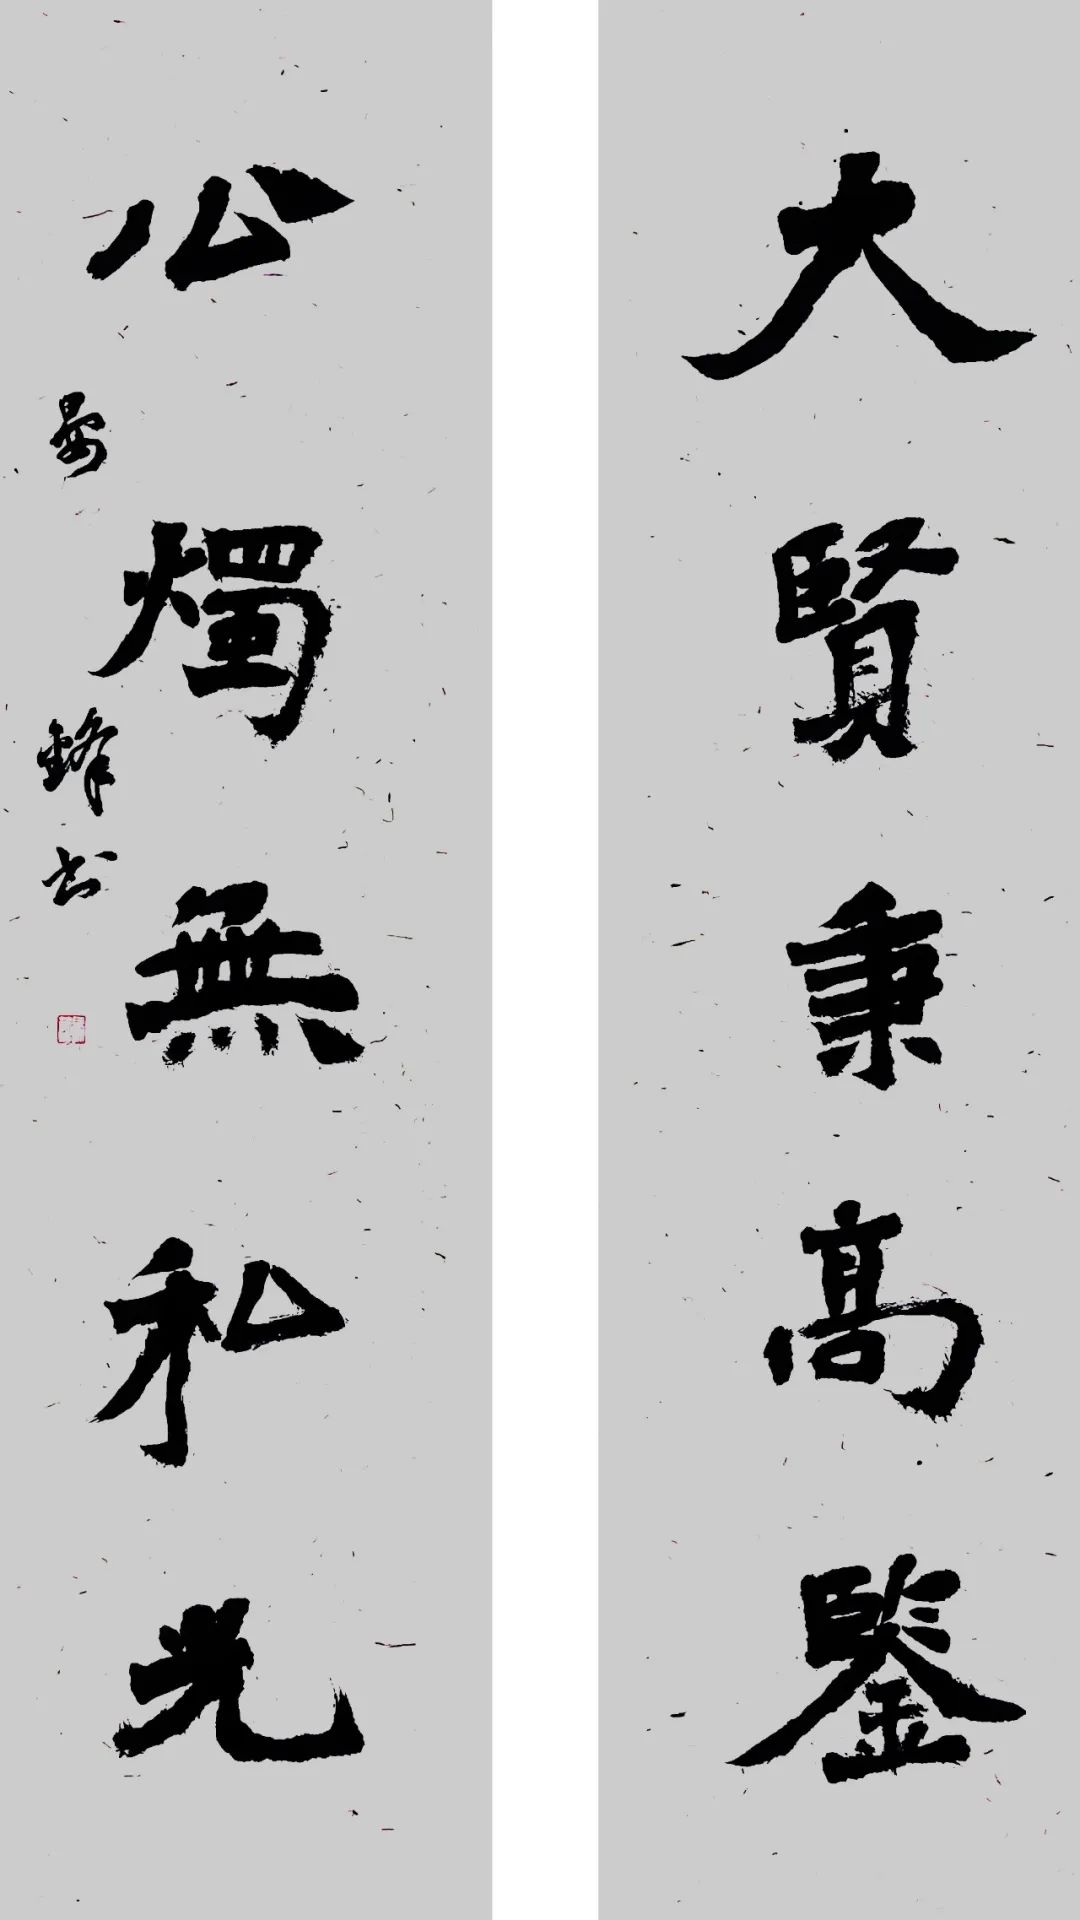 大賢秉高鑒
公燭無私光
晏鋒书